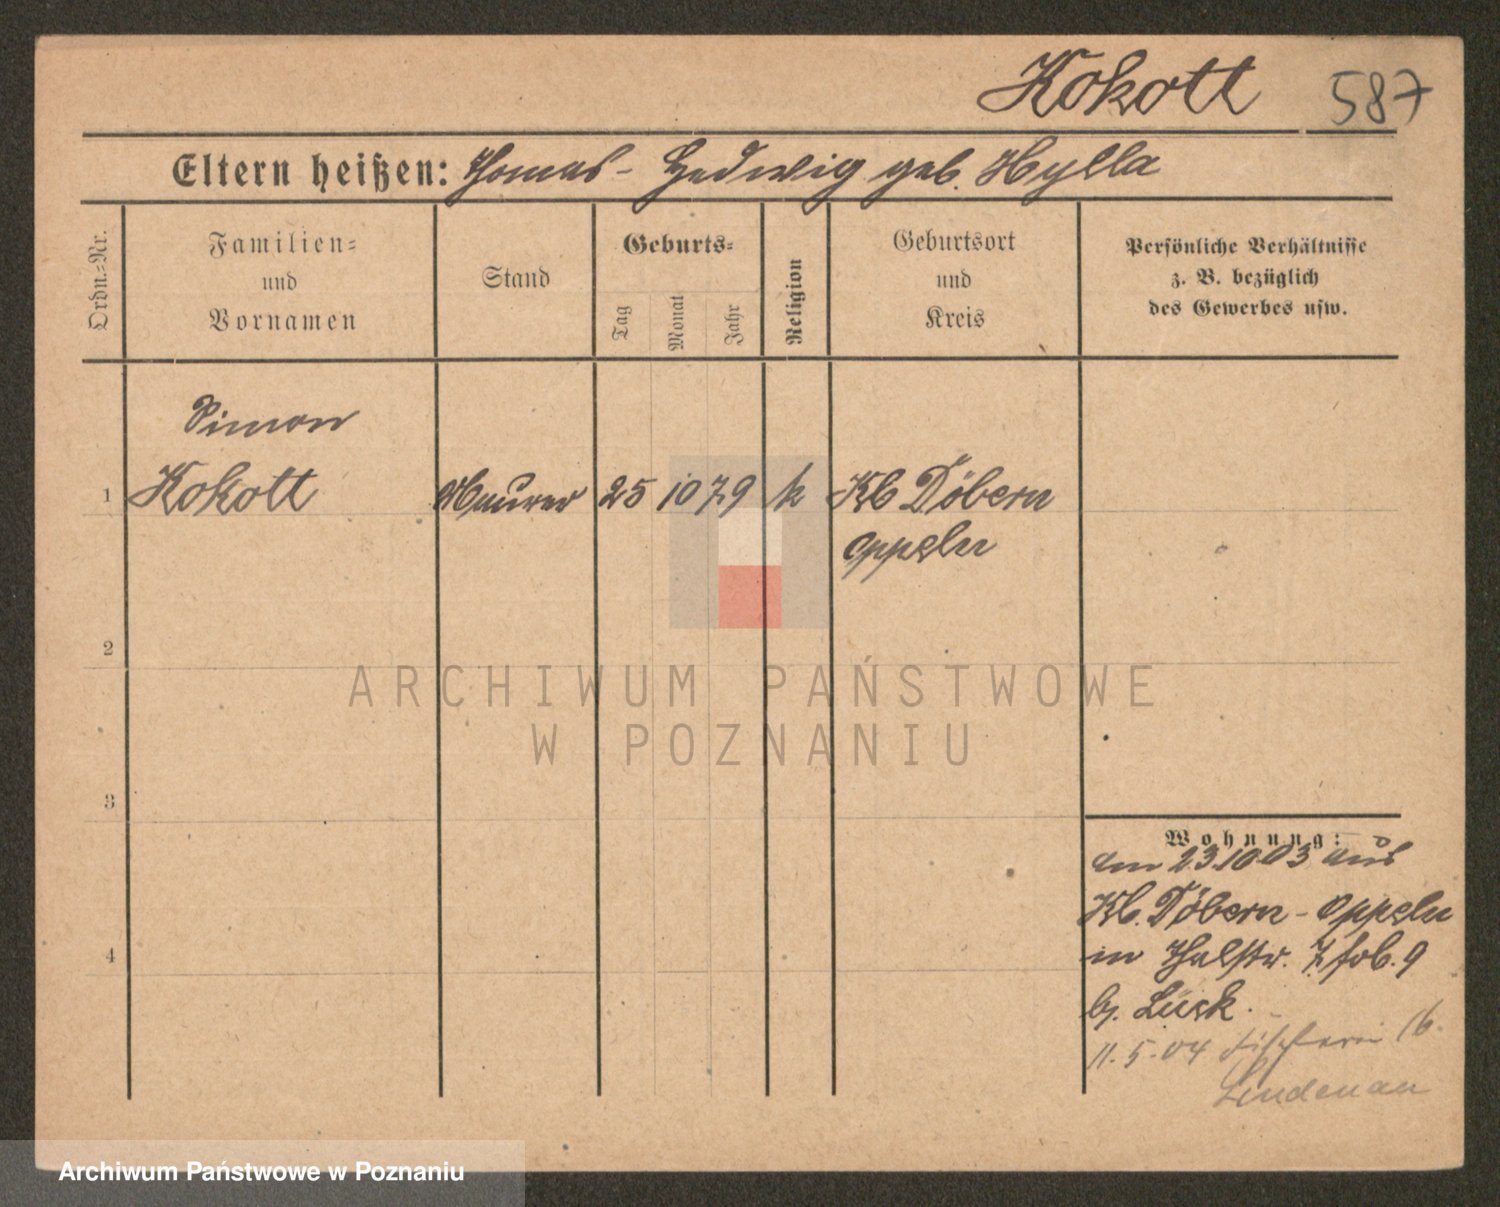 Kokott 587
Eltern heißen: Thomas - Hedwig geb. Hylla
Ordn.-Nr.
Familien-
und
Vornamen
Stand
Geburts-
Tag
Monat
Jahr
Religion
Geburtsort
und
Kreis
Persönliche Verhältnisse
z. B. bezüglich
des Gewerbes usw.
Simon
1 Kokott Maurer 25 10 79 k Kl. Döbern
Oppeln
2
ARCHIWUM PAŃSTWOWE
W POZNANIU
3
Wohnung:
am 23.10.03 aus
Kl. Döbern - Oppeln
in Thalstr. 7 9
b. Lück.
11.5.04 Fischerei 16.
Lindenau
Archiwum Państwowe w Poznaniu